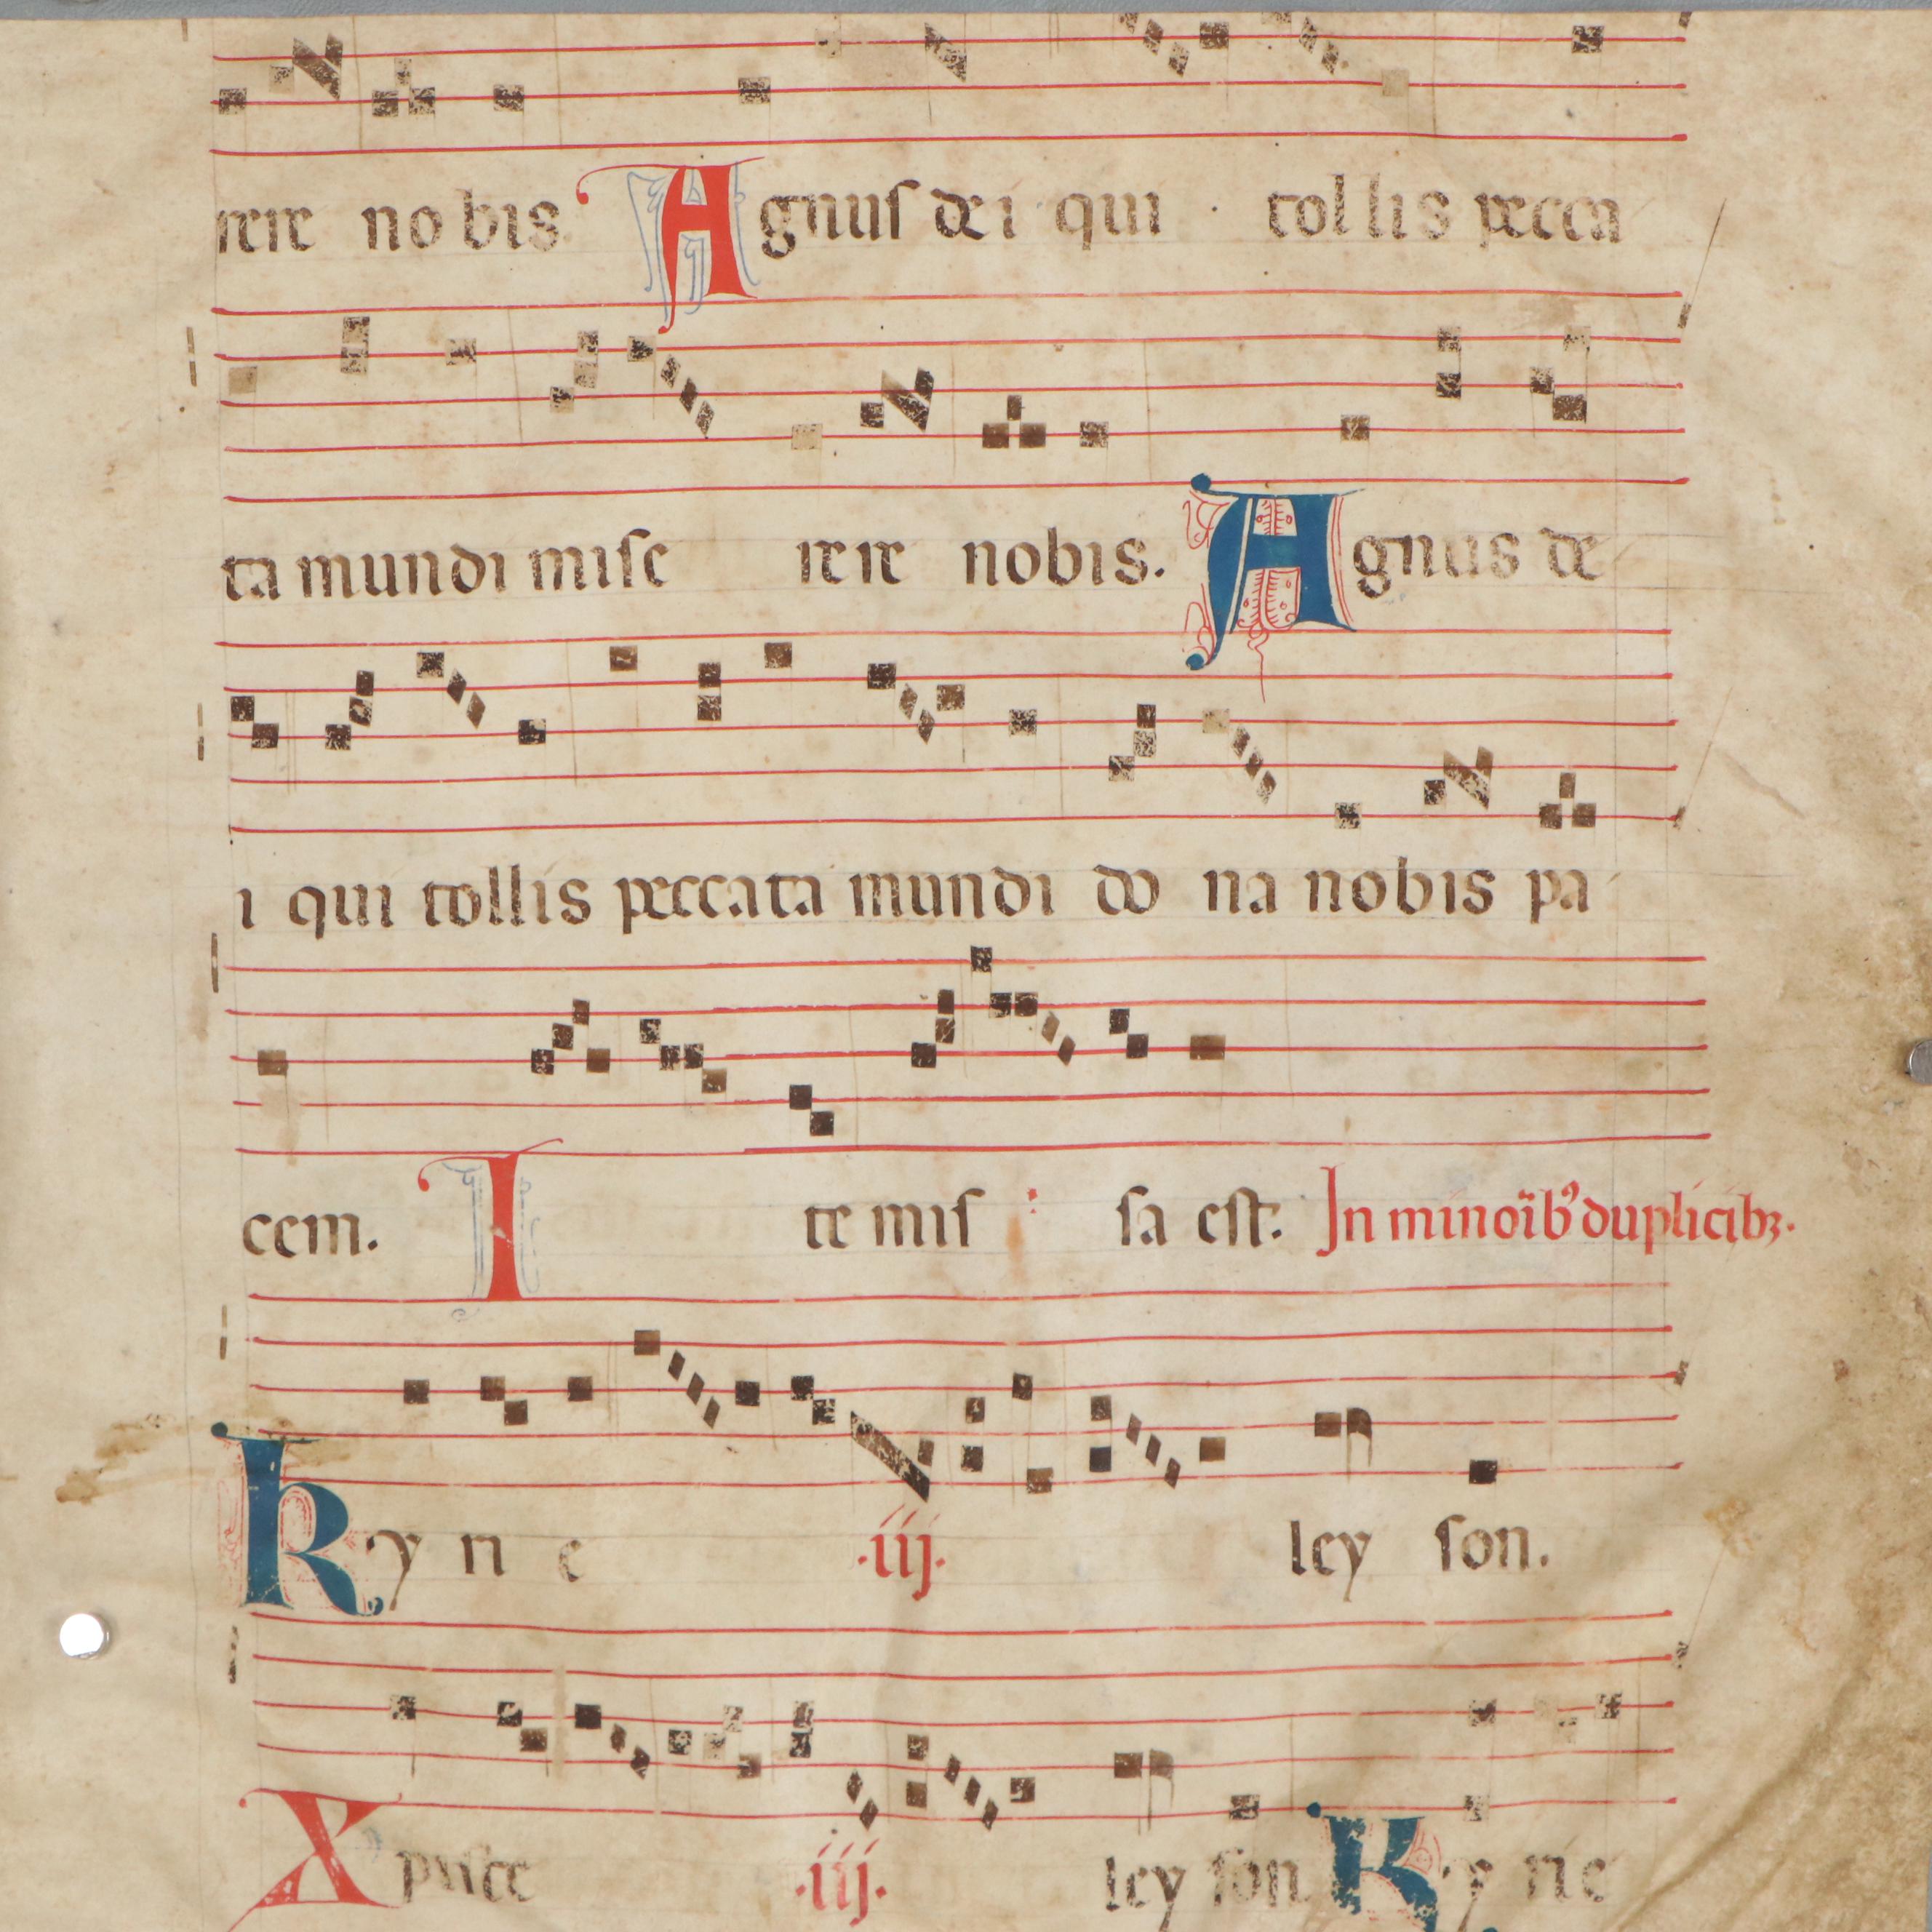 rere nobis Agnus dei qui tollis pecca
ta mundi mise rere nobis. Agnus de
i qui tollis peccata mundi do na nobis pa
cem. I te mis sa est. In minoꝛ̄ibꝰ duplicibꝫ.
Ky ri e .iij. ley son.
Xpiste .iij. ley son. Ky rie